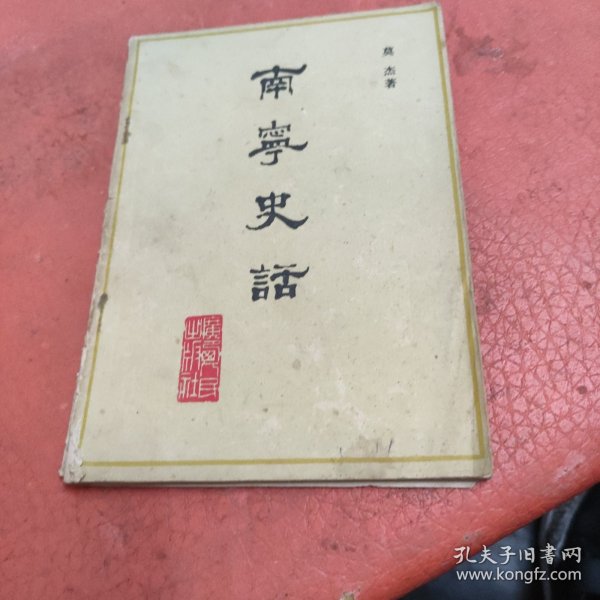 莫杰著
南寧史話
廣西人民
出版社
孔夫子旧書网
www.kongfz.com